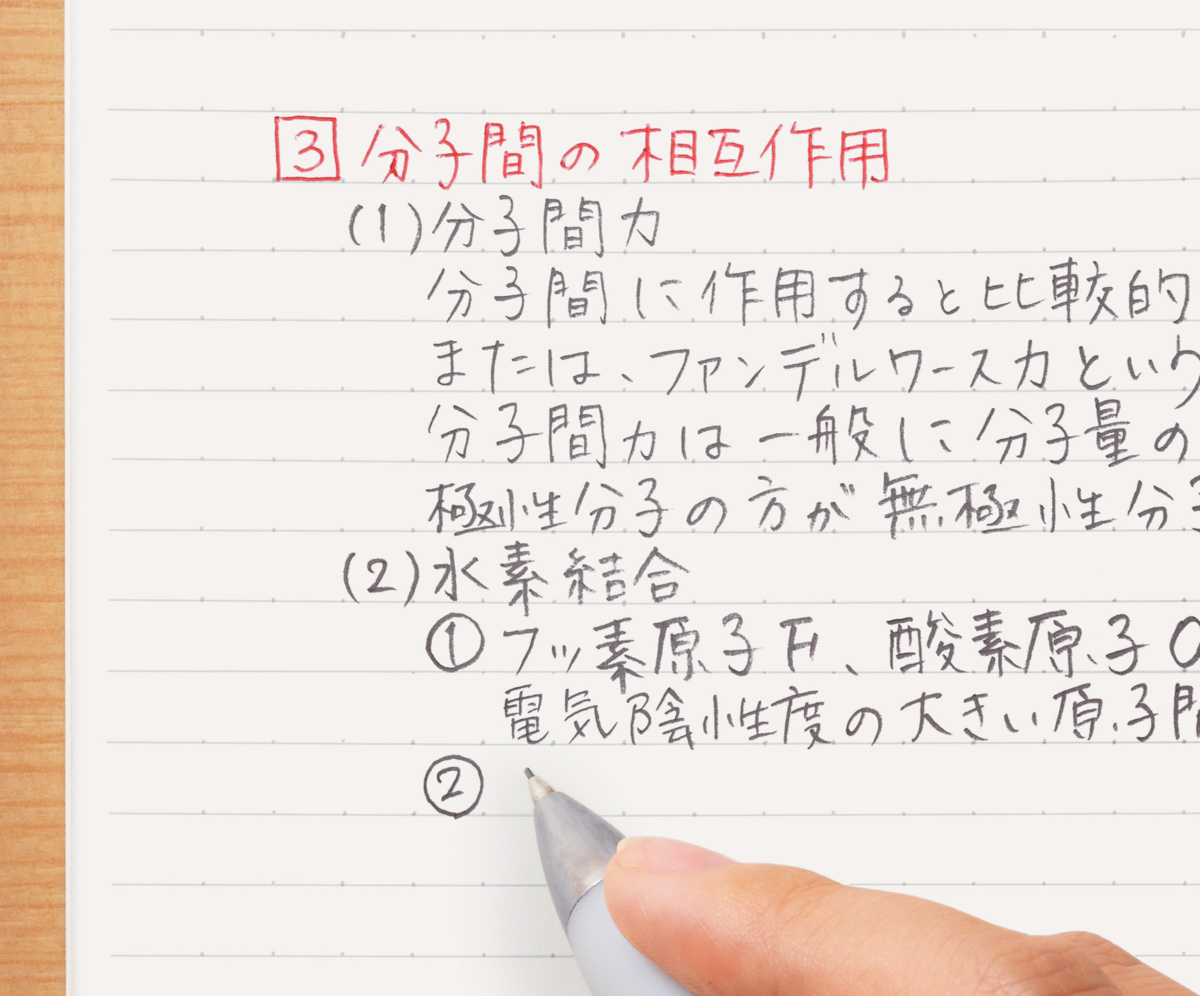 3 分子間の相互作用
(1)分子間力
分子間に作用すると比較的
または、ファンデルワース力という
分子間力は一般に分子量の
極性分子の方が無極性分子
(2)水素結合
① フッ素原子F、酸素原子O
電気陰性度の大きい原子間
②